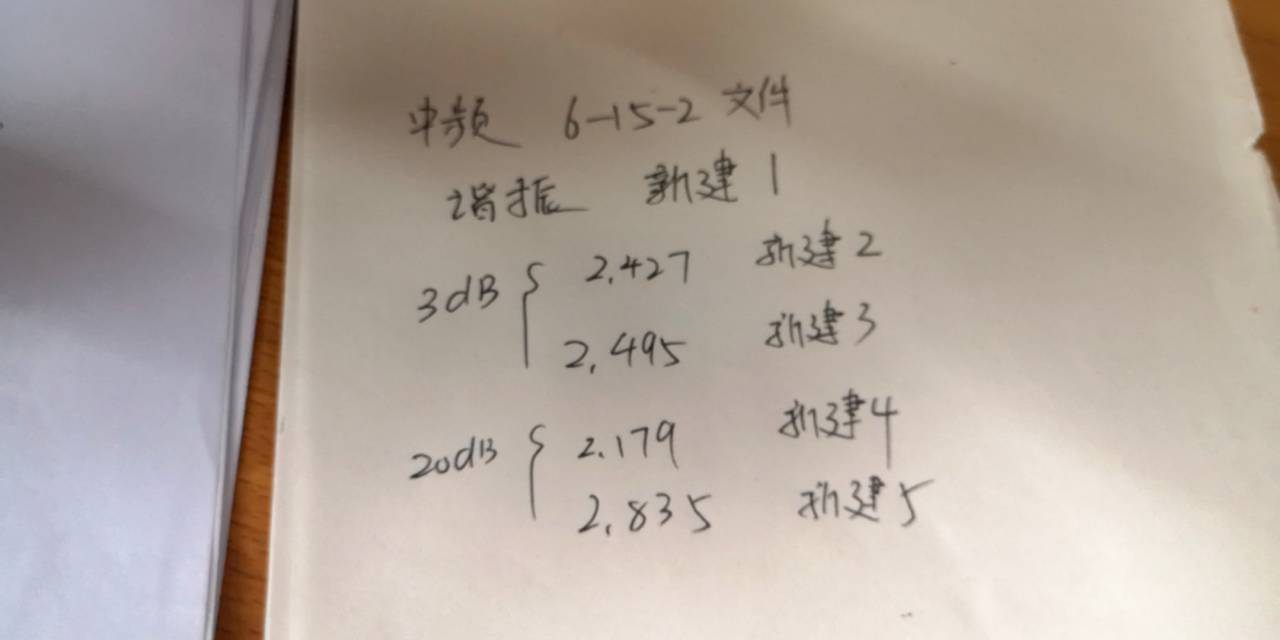 中频 6-15-2 文件
谐振 新建1
3dB { 2.427 新建2
2.495 新建3
20dB { 2.179 新建4
2.835 新建5